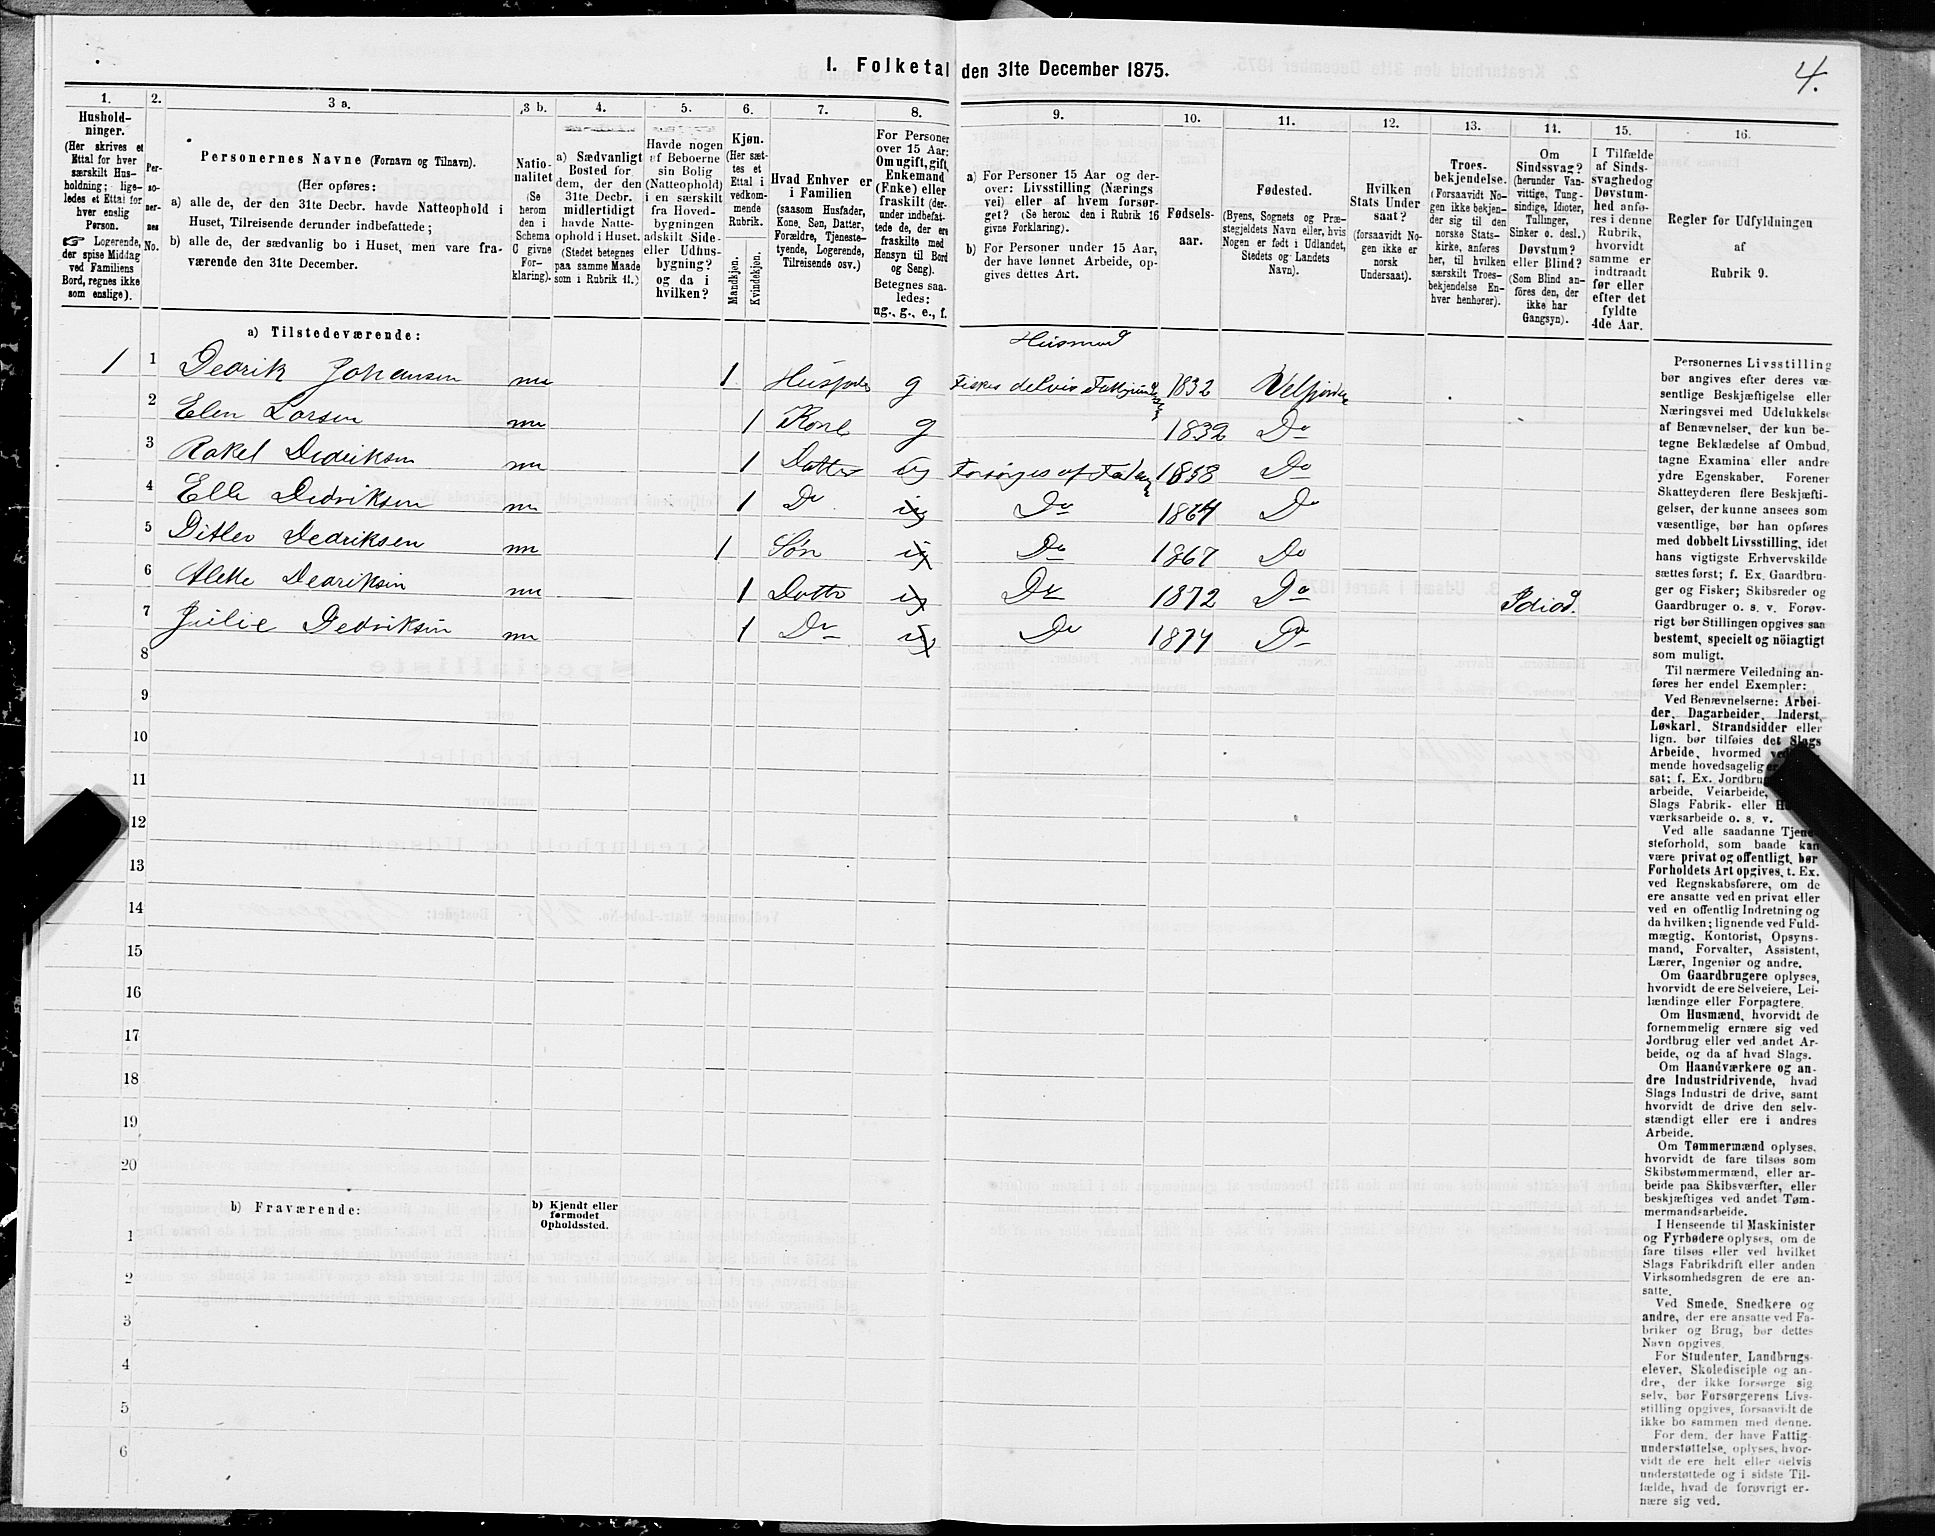 1. Folketal den 31te December 1875.
4.
1.
Hushold-
ninger.
(Her skrives et
Ettal for hver
særskilt Hus-
holdning; lige-
ledes et Ettal for
hver enslig
Person.
☞ Logerende,
der spise Middag
ved Familiens
Bord, regnes ikke
som enslige).
2.
Per-
so-
ner-
nes
No.
3 a.
Personernes Navne (Fornavn og Tilnavn).
(Her opføres:
a) alle de, der den 31te Decbr. havde Natteophold i
Huset, Tilreisende derunder indbefattede;
b) alle de, der sædvanlig bo i Huset, men vare fra-
værende den 31te December.
3 b.
Natio-
nalitet
(Se
herom
den i
Schema
C givne
For-
klaring).
4.
a) Sædvanligt
Bosted for
dem, der den
31te Decbr.
midlertidigt
havde Natte-
ophold i Huset.
(Stedet betegnes
paa samme Maade
som i Rubrik 11.)
5.
Havde nogen
af Beboerne
sin Bolig
(Natteophold)
i en særskilt
fra Hoved-
bygningen
adskilt Side-
eller Udhus-
bygning?
og da i
hvilken?
6.
Kjøn.
(Her sæt-
tes et
Ettal i
vedkom-
mende
Rubrik.
Mandkjøn.
Kvindekjøn.
7.
Hvad Enhver er
i Familien
(saasom Husfader,
Kone, Søn, Datter,
Forældre, Tjeneste-
tyende, Logerende,
Tilreisende osv.)
8.
For Personer
over 15 Aar:
Om ugift, gift
Enkemand
(Enke) eller
fraskilt (der-
under indbefat-
tede de, der ere
fraskilte med
Hensyn til Bord
og Seng).
Betegnes saa-
ledes:
ug., g., e., f.
9.
a) For Personer 15 Aar og der-
over: Livsstilling (Nærings
vei) eller af hvem forsør-
get? (Se herom den i Rubrik 16
givne Forklaring).
b) For Personer under 15 Aar,
der have lønnet Arbeide, op-
gives dettes Art.
10.
Fødsels-
aar.
11.
Fødested.
(Byens, Sognets og Præ-
stegjeldets Navn eller, hvis
Nogen er født i Udlandet,
Stedets og Landets
Navn).
12.
Hvilken
Stats Under
saat?
(forsaavidt No-
gen ikke er
norsk
Undersaat).
13.
Troes-
bekjendelse.
(Forsaavidt No-
gen ikke bekjen-
der sig til den
norske Stats-
kirke, anføres
her, til hvilken
særskilt Troes-
bekjendelse En-
hver henhører).
14.
Om
Sindssvag?
(herunder Van-
vittige, Tung-
sindige, Idioter,
Tullinger,
Sinker o. desl.)
Døvstum?
eller Blind?
(Som Blind an-
føres den, der
ikke har
Gangsyn).
15.
I Tilfælde
af Sinds-
svaghed og
Døvstum-
hed anfø-
res i denne
Rubrik,
hvorvidt
samme er
indtraadt
før eller
efter det
fyldte
4de Aar.
16.
Regler for Udfyldningen
af
Rubrik 9.
a) Tilstedeværende:
Husmand
1 1 Dedrik Johansen nu 1 Husfader g Fisker delvis 1832 Velfjorden
2 Elen Larsen nu 1 Kone g 1832 Do
3 Rakel Dedriksen nu 1 Datter ug Forsørges af Faderen 1858 Do
4 Elle Dedriksen nu 1 Do ug Do 1864 Do
5 Ditlev Dedriksen nu 1 Søn ug Do 1867 Do
6 Alette Dedriksen nu 1 Datter ug Do 1872 Do Idiod.
7 Julie Dedriksen nu 1 Do ug Do 1874 Do
8
9
10
11
12
13
14
15
16
17
18
19
20
b) Fraværende:
b) Kjendt eller
formodet
Opholdssted.
1
2
3
4
5
6
Personernes Livsstilling
bør angives efter deres væ-
sentlige Beskjæftigelse eller
Næringsvei med Udelukkelse
af Benævnelser, der kun be-
tegne Beklædelse af Ombud,
tagne Examina eller andre
ydre Egenskaber. Forener
Skatteyderen flere Beskjæfti-
gelser, der kunne ansees som
væsentlige, bør han opføres
med dobbelt Livsstilling, idet
hans vigtigste Erhvervskilde
sættes først; f. Ex. Gaardbru-
ger og Fisker; Skibsreder og
Gaardbruger o. s. v. Forøv-
rigt bør Stillingen opgives saa
bestemt, specielt og nöiagtigt
som muligt.
Til nærmere Veiledning an-
føres her endel Exempler:
Ved Benævnelserne: Arbei-
der, Dagarbeider, Inderst,
Løskarl, Strandsidder eller
lign. bør tilføies det Slags
Arbeide, hvormed
mende hovedsagelig er
sat; f. Ex.
arbeide, Veiarbeide,
Slags Fabrik- eller
værksarbeide o. s. v.
Ved alle saadanne Tjene-
steforhold, som baade kan
være privat og offentligt, bør
Forholdets Art opgives, t. Ex.
ved Regnskabsførere, om de
ere ansatte ved en privat eller
ved en offentlig Indretning og
da hvilken; lignende ved Fuld-
mægtig, Kontorist, Opsyns-
mand, Forvalter, Assistent,
Lærer, Ingeniør og andre.
Om Gaardbrugere oplyses,
hvorvidt de ere Selveiere, Lei-
lændinge eller Forpagtere.
Om Husmænd, hvorvidt de
fornemmelig ernære sig ved
Jordbrug eller ved andet Ar-
beide, og da af hvad Slags.
Om Haandværkere og an-
dre Industridrivende, hvad
Slags Industri de drive, samt
hvorvidt de drive den selv-
stændigt eller ere i andres
Arbeide.
Om Tømmermænd oplyses,
hvorvidt de fare tilsøs som
Skibstømmermænd, eller ar-
beide paa Skibsværfter, eller
beskjæftiges ved andet Tøm-
mermandsarbeide.
I Henseende til Maskinister
og Fyrbødere oplyses, om de
fare tilsøs eller ved hvilket
Slags Fabrikdrift eller anden
Virksomhedsgren de ere an-
satte.
Ved Smede, Snedkere og
andre, der ere ansatte ved Fa-
briker og Brug, bør dettes
Navn opgives.
For Studenter, Landbrugs-
elever, Skoledisciple og an-
dre, der ikke forsørge sig
selv, bør Forsørgerens Livs-
stilling opgives, forsaavidt de
ikke bo sammen med denne.
For dem, der have Fattig-
understøttelse, oplyses, hvor-
vidt de ere helt eller delvis
understøttede og i sidste Til-
fælde, hvad de forøvrigt er-
nære sig ved.